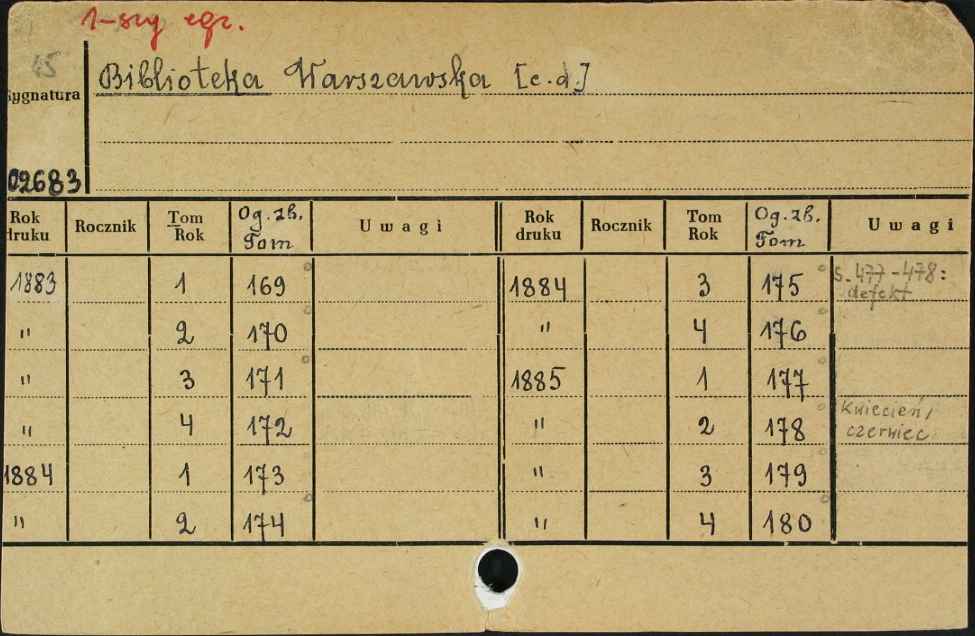 1-szy egz.
15
Sygnatura
Biblioteka Warszawska [c.d.]
02683
Rok druku Rocznik Tom Rok Og. zb. Tom Uwagi Rok druku Rocznik Tom Rok Og. zb. Tom Uwagi
1883 1 169 1884 3 175 S. 477-478: defekt
" 2 170 " 4 176
" 3 171 1885 1 177
" 4 172 " 2 178 kwiecień, czerwiec
1884 1 173 " 3 179
" 2 174 " 4 180